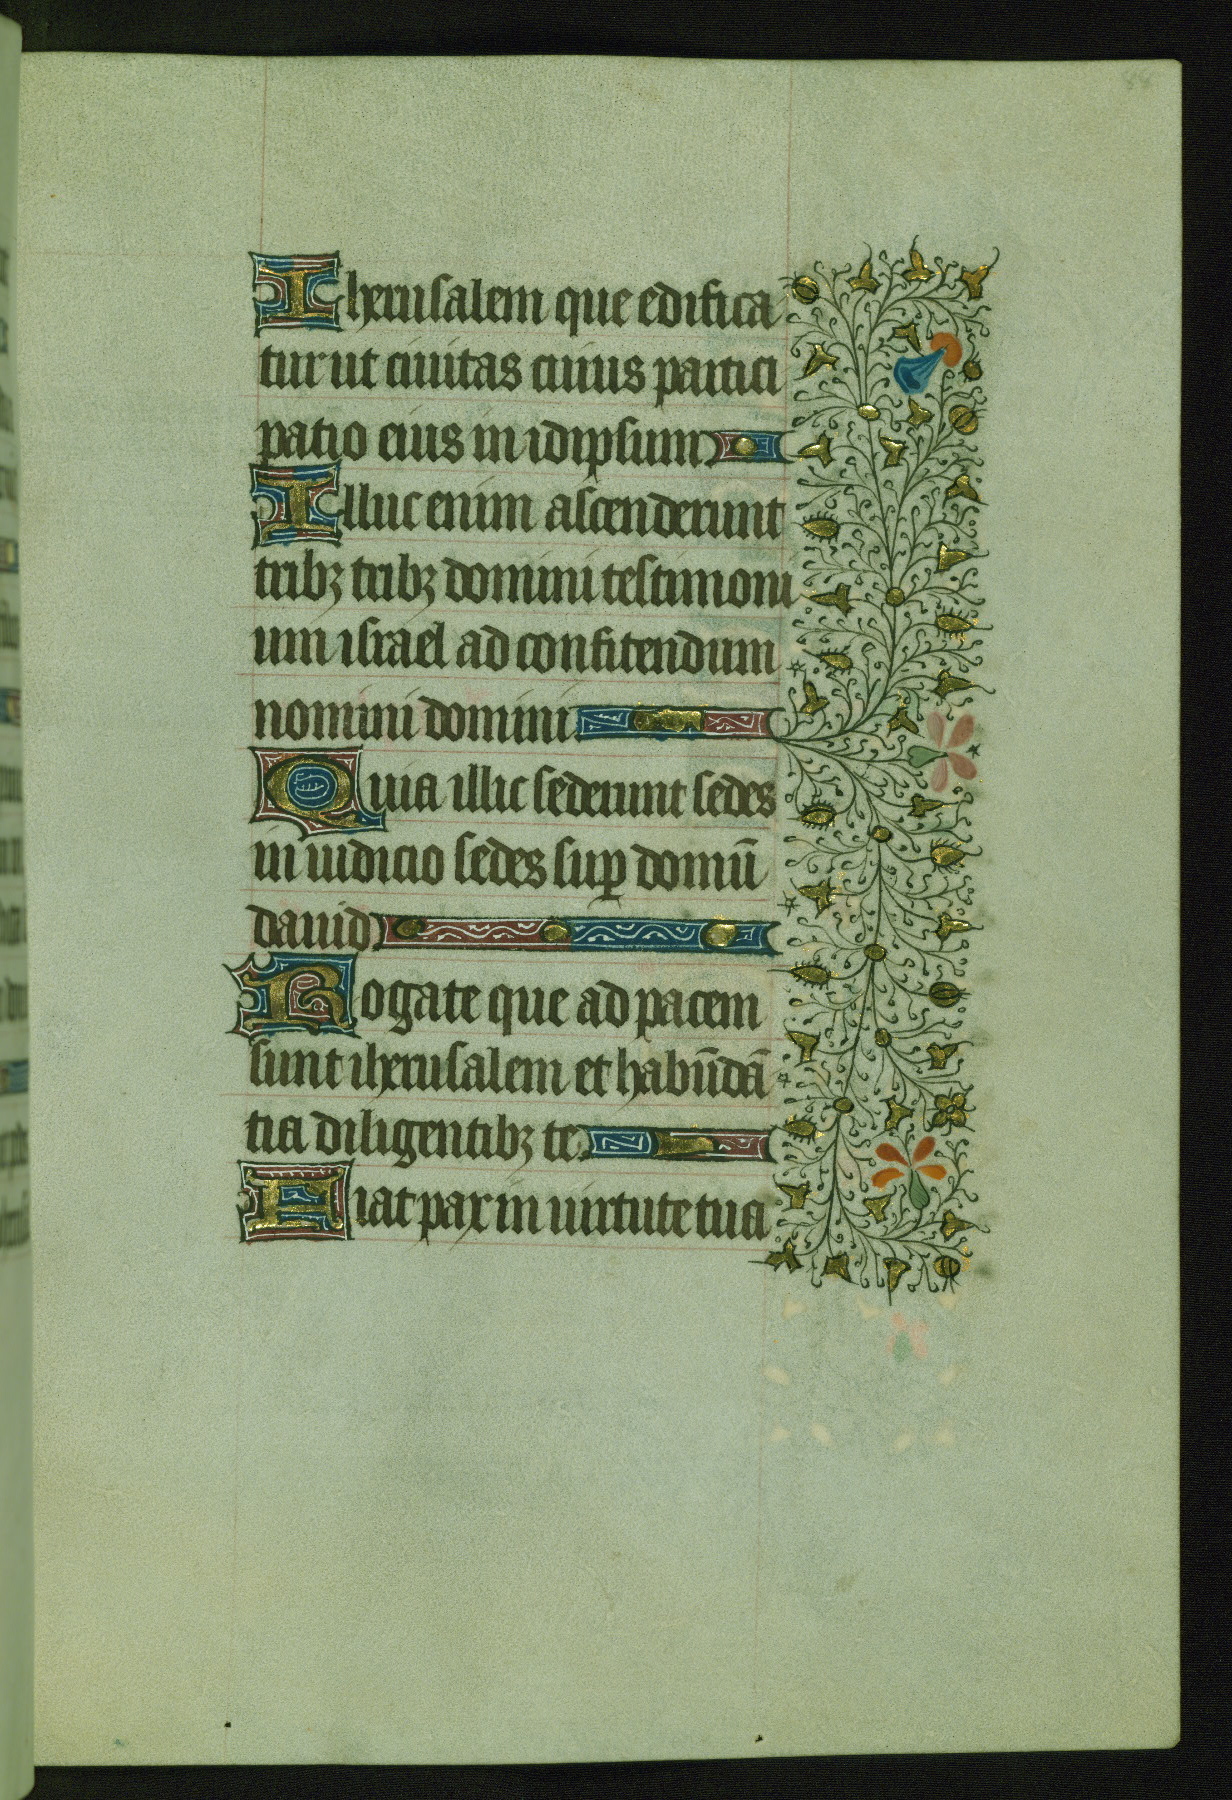 Iherusalem que edifica
tur ut ciuitas cuius partici
patio eius in idipsum
Illuc enim ascenderunt
tribꝫ tribꝫ domini testimoni
um israel ad confitendum
nomini domini
Quia illic sederunt sedes
in iudicio sedes suꝑ domū
dauid
Rogate que ad pacem
sunt iherusalem et habūdā
tia diligentibꝫ te
Fiat pax in uirtute tua